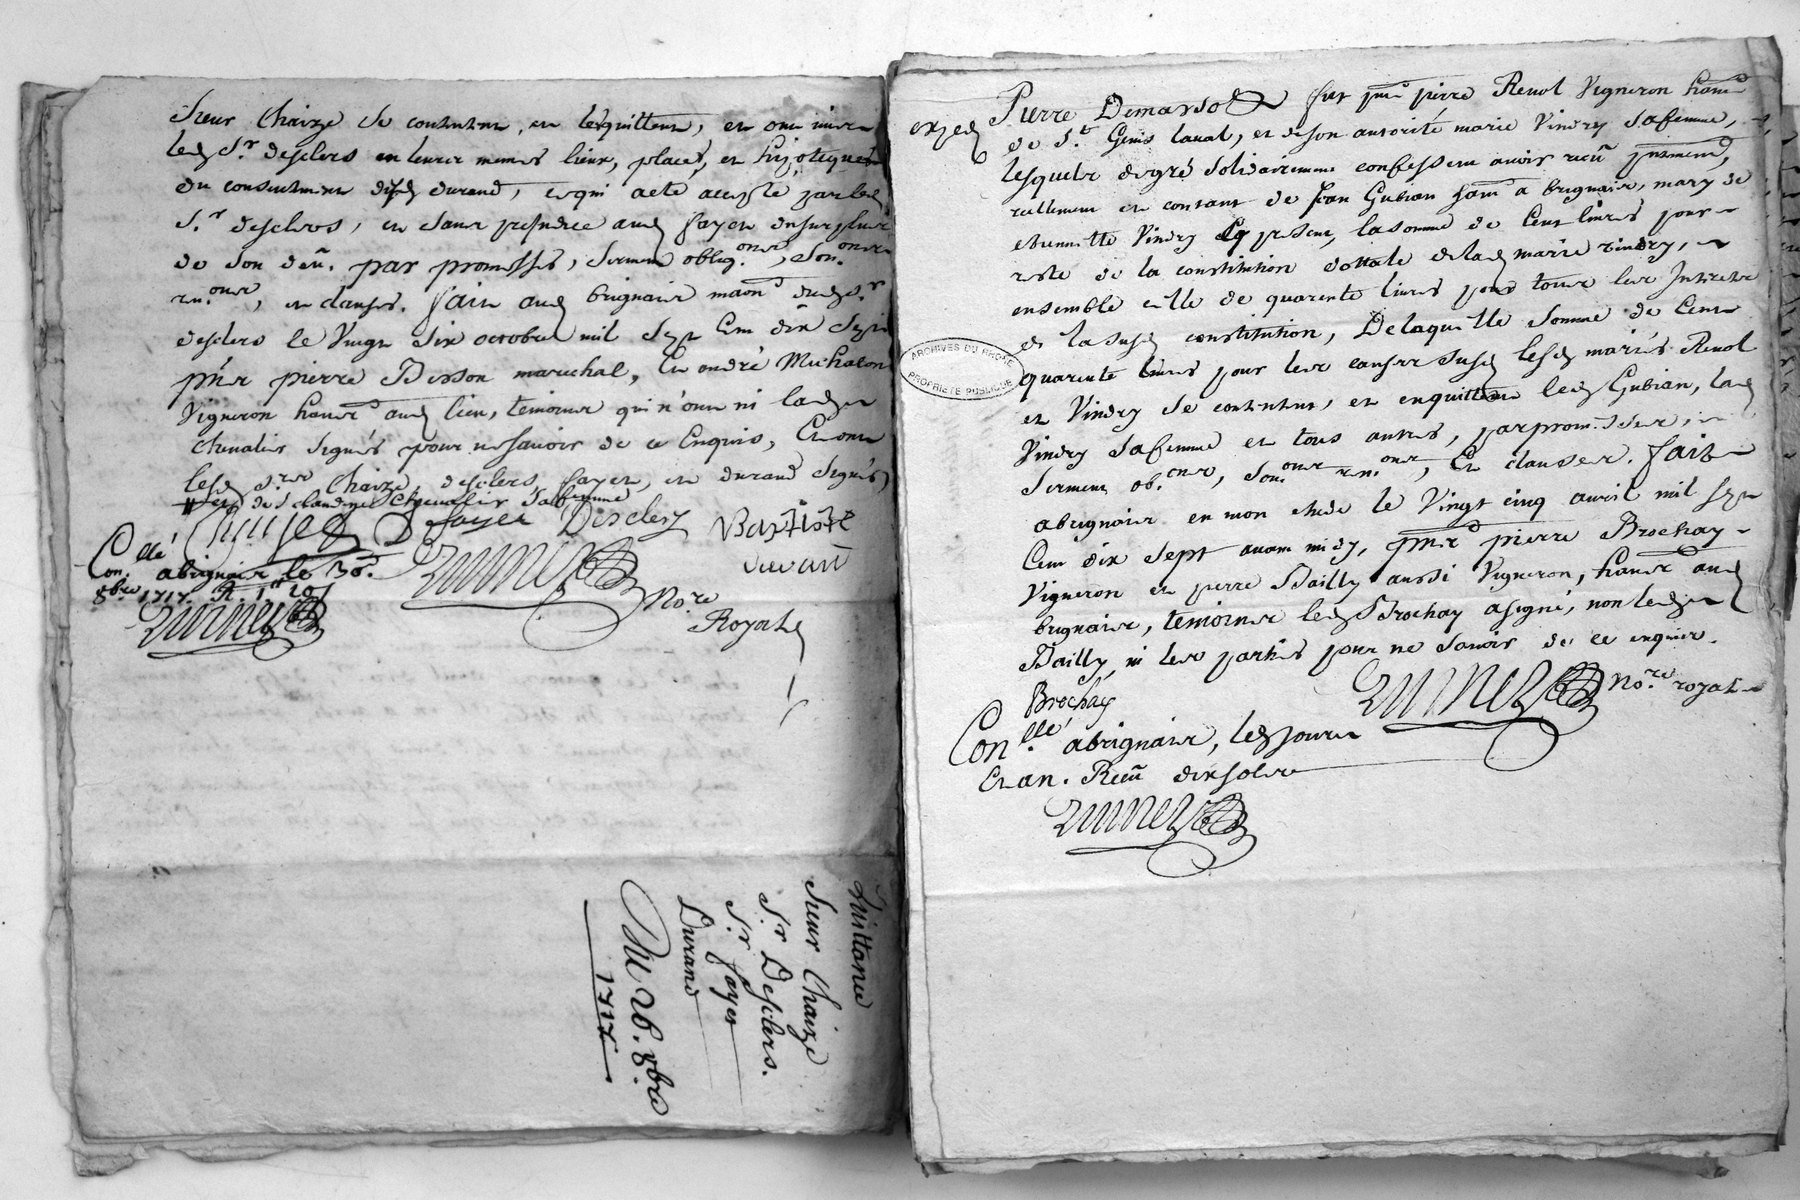 sieur Chaize se contentent, en lesquittent, et ont mis
led. Sr. desclers en leurs memes lieux, places, et hipoteques
du consentement dud. durand, ce qui a eté accepté par led.
Sr. desclers, et sans prejudice aud. fayer du surplus
de son deu. par promesses, serment oblig.ons, Son.ons
ren.ons, et clauses. fait aud. brignais maon dud. Sr.
desclers le Vingt six octobre mil sept Cent dix sept
pnt pierre Bisson marechal, Et andré Michalon
Vigneron hants aud. lieu, temoins qui n'ont ni lad.
chevalier signés pour ne savoir de ce Enquis, Et ont
lesd. srs Chaize, desclers, fayer, et durand signés
et de claudine Chevalier sa femme
Chaize D fayer Desclers Baptiste
durand
Con.llé a brignais le 30e.
8bre 1717. R.
No.re
Royal
Quittance
Sieur Chaize
S.r Desclers.
S.r fayer
Durand
Du 26. 8bre
1717
Pierre Demarsot fut pnt pierre Revol Vigneron hant
exped
de St. Genis laval, et de son autorité marie Vindry sa femme,
lesquels degré solidairement confessent avoir receu presentement,
reellement et contant de Jean Gubian hant a brignais, mary de
etiennette Vindry Cy present, la somme de Cent livres pour
reste de la constitution dottale de lad. marie vindry, et
ensemble celle de quarente livres pour tous les Interets
de la susd. constitution, De laquelle somme de Cent
quarente livres pour les causes susd. lesd. mariés Revol
et Vindry se contentent, et en quittent led. Gubian, lad.
Vindry sa femme et tous autres, par promesses,
serment ob.ons, Son.ons ren.ons, Et clauses. fait
a brignais en mon etude le Vingt cinq avril mil sept
Cent dix sept avant midy, pnt pierre Brochay
Vigneron et pierre Bailly aussi Vigneron, hants aud.
brignais, temoins led. Brochay a signé, non led.
Bailly, ni les parties pour ne savoir de ce enquis.
Brochay
No.re royal
Con.llé a brignais, led. jour
Et an. Receu dix sols
ARCHIVES DU RHÔNE
PROPRIÉTÉ PUBLIQUE